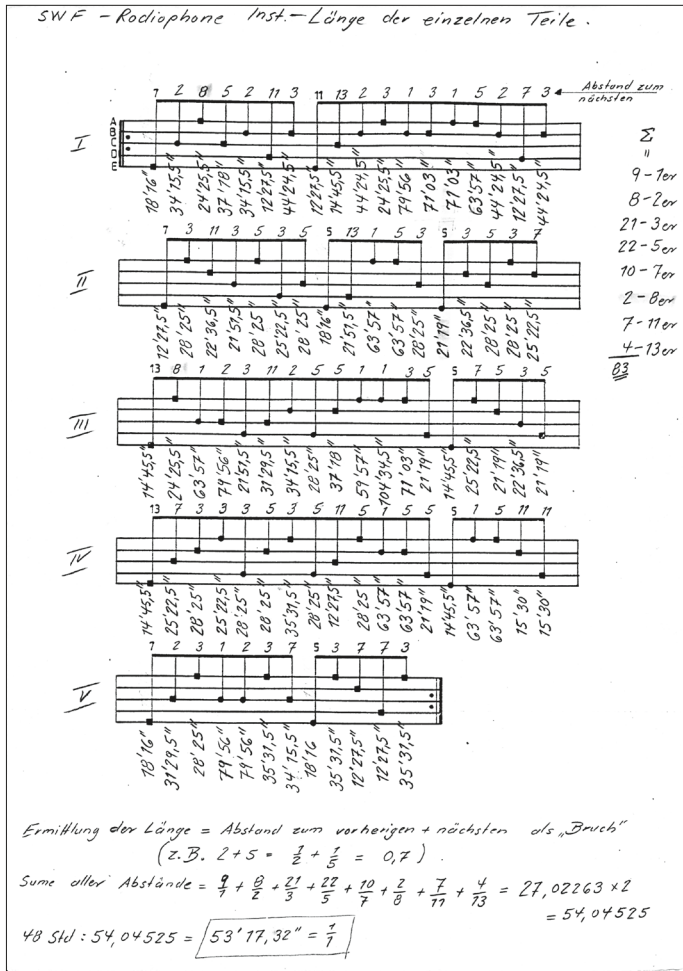 SWF - Radiophone Inst. - Länge der einzelnen Teile.
7 2 8 5 2 11 3 11 13 2 3 1 3 1 5 2 7 3
Abstand zum
nächsten
A
B
C
D
E
I
18'16" 34'15,5" 24'25,5" 37'18" 34'15,5" 12'27,5" 44'24,5" 12'27,5" 14'45,5" 44'24,5" 24'25,5" 79'56" 71'03" 71'03" 63'57" 44'24,5" 12'27,5" 44'24,5"
Σ
"
9 - 1er
8 - 2er
21 - 3er
22 - 5er
10 - 7er
2 - 8er
7 - 11er
4 - 13er
83
7 3 11 3 5 3 5 5 13 1 5 3 5 3 5 3 7
II
12'27,5" 28'25" 22'36,5" 21'51,5" 28'25" 25'22,5" 28'25" 18'16" 21'51,5" 63'57" 63'57" 28'25" 21'19" 22'36,5" 28'25" 28'25" 25'22,5"
13 8 1 2 3 11 2 5 1 1 3 5 5 7 5 3 5
III
14'45,5" 24'25,5" 63'57" 79'56" 21'51,5" 31'29,5" 34'15,5" 28'25" 37'18" 59'57" 104'34,5" 71'03" 21'19" 14'45,5" 25'22,5" 21'19" 22'36,5" 21'19"
13 7 3 3 3 5 3 5 11 5 1 5 5 5 1 5 11 11
IV
14'45,5" 25'22,5" 28'25" 25'22,5" 28'25" 28'25" 35'31,5" 28'25" 12'27,5" 28'25" 63'57" 63'57" 21'19" 14'45,5" 63'57" 63'57" 15'30" 15'30"
1 2 3 1 2 3 7 5 3 7 7 3
V
18'16" 31'29,5" 28'25" 79'56" 79'56" 35'31,5" 34'15,5" 18'16 35'31,5" 12'27,5" 12'27,5" 35'31,5"
Ermittlung der Länge = Abstand zum vorherigen + nächsten als „Bruch"
(z.B. 2+5 = 1/2 + 1/5 = 0,7).
Sume aller Abstände = 9/1 + 8/2 + 21/3 + 22/5 + 10/7 + 2/8 + 7/11 + 4/13 = 27,02263 x 2
= 54,04525
48 Std : 54,04525 = 53'17,32" = 1/1